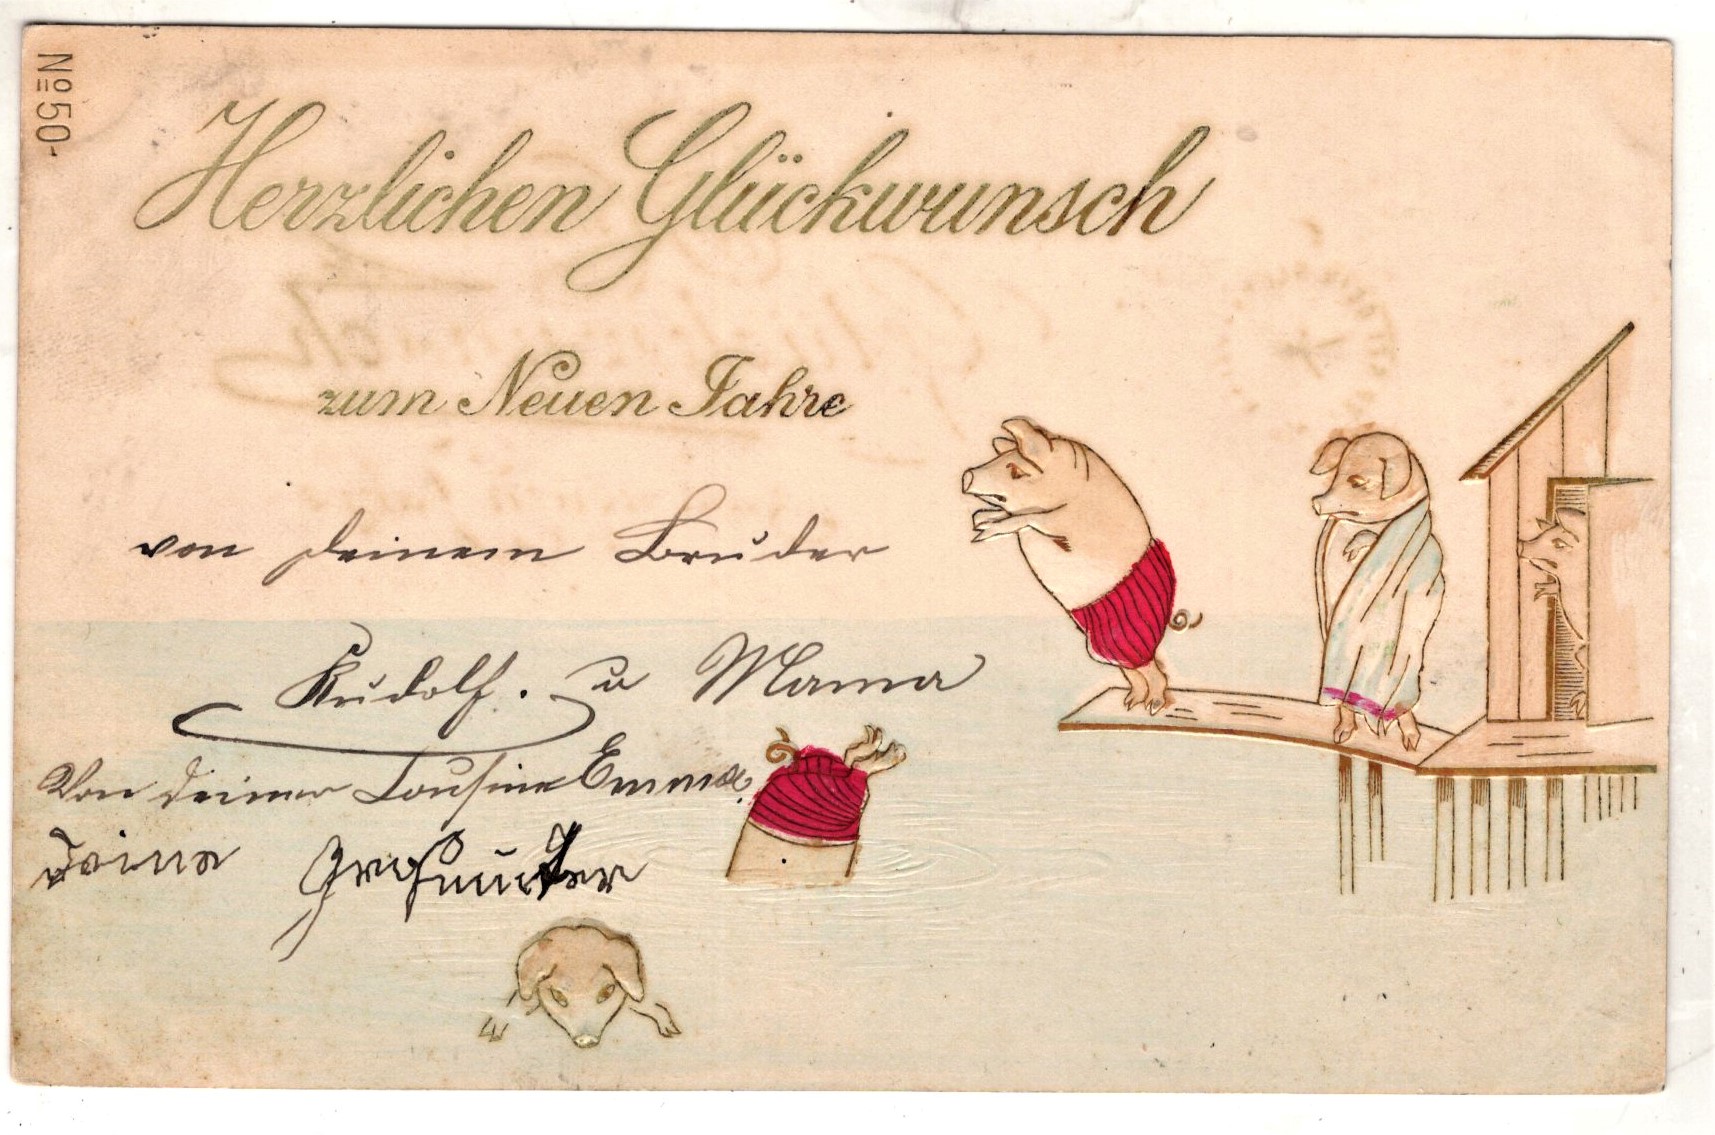 No 50-
Herzlichen Glückwunsch
zum Neuen Jahre
von deinem Bruder
Rudolf. u Mama
Von deiner Cousine Emma.
Deine Großmutter